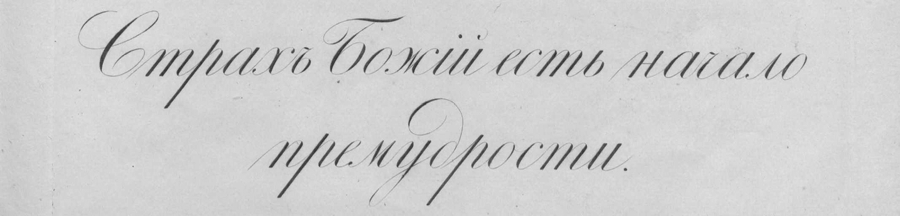 Страхъ Божій есть начало
премудрости.